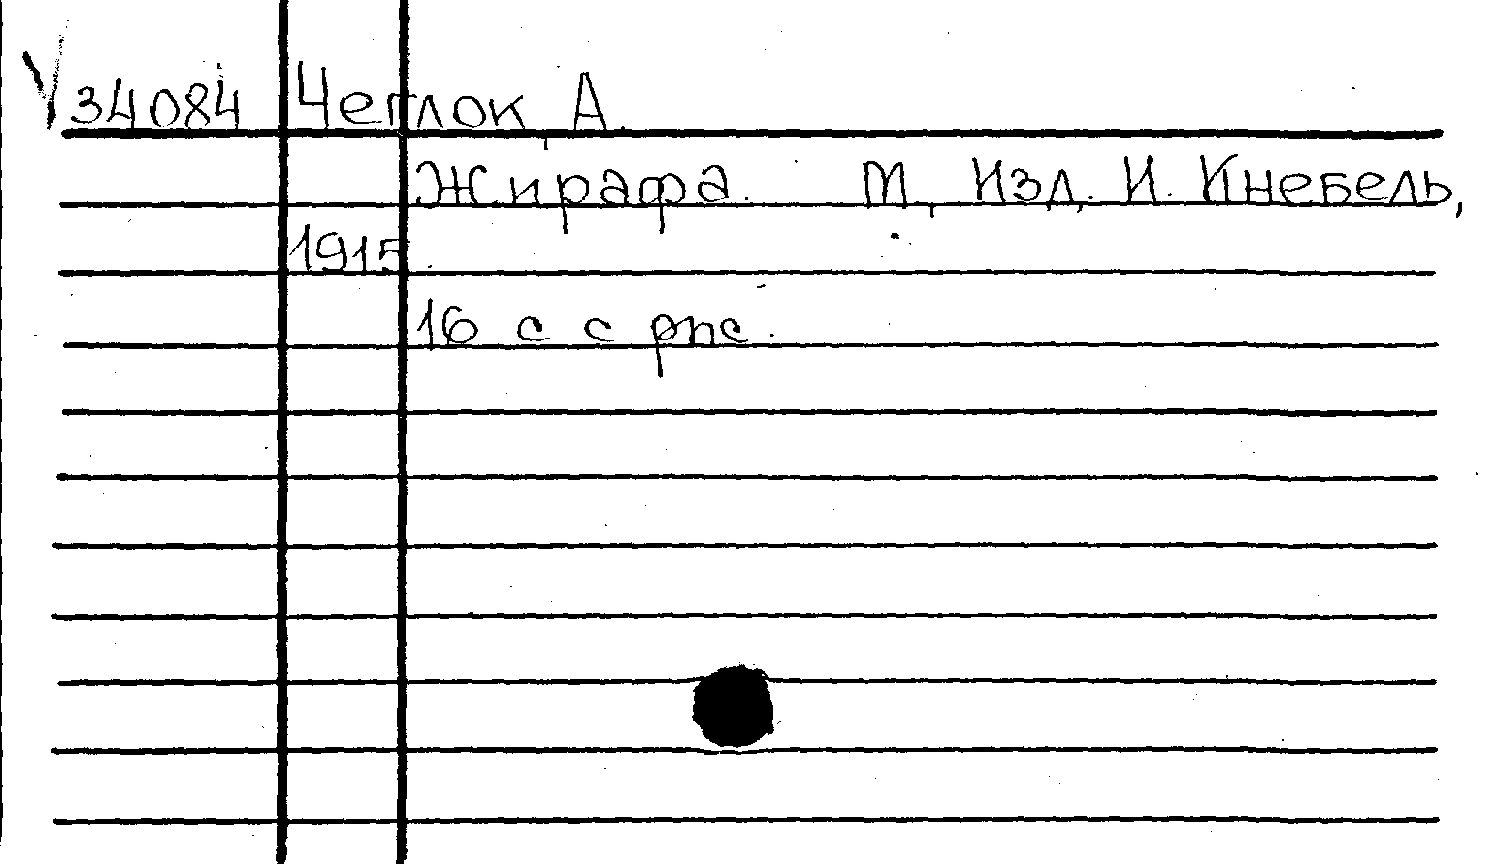 V 34084 Чеглок, А.
Жирафа. М., Изд. И. Кнебель,
1915.
16 с. с рис.